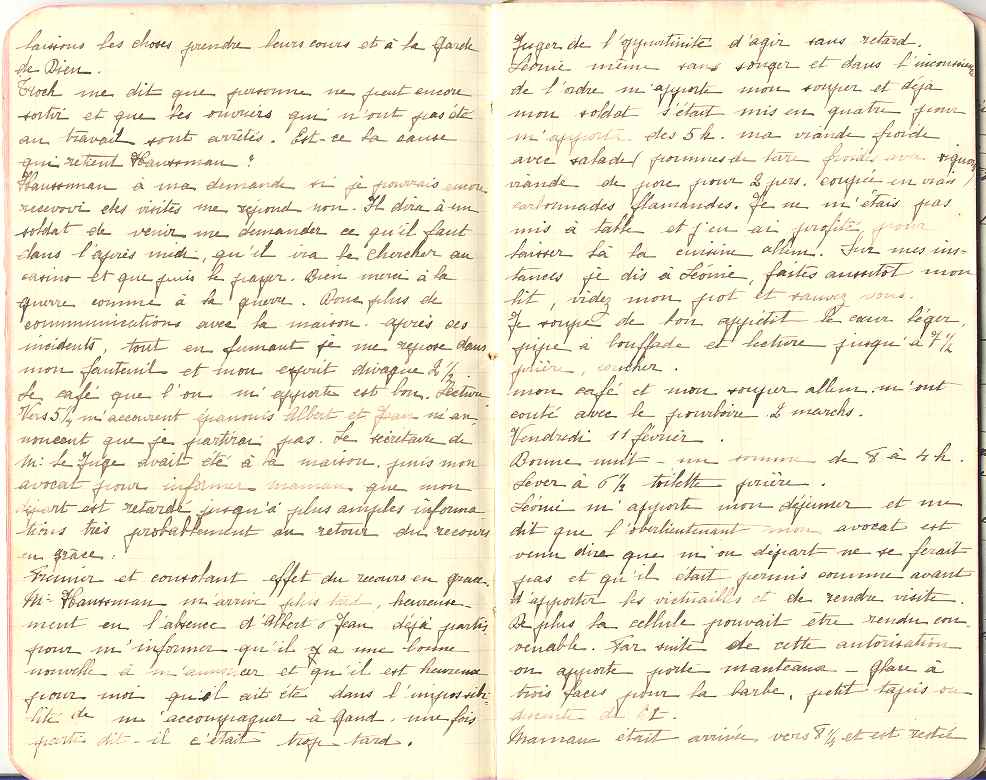 laissons les choses prendre leurs cours et à la garde
de Dieu.
Croch me dit que personne ne peut encore
sortir et que les ouvriers qui n'ont pas été
au travail sont arrêtés. Est-ce la cause
qui retient Haussman ?
Haussman à ma demande si je pourrais encore
recevoir des visites me répond non. Il dira à un
soldat de venir me demander ce qu'il faut
dans l'après midi, qu'il ira le chercher au
casino et que puis le payer. Bien merci à la
guerre comme à la guerre. Donc plus de
communications avec la maison. après ces
incidents, tout en fumant je me repose dans
mon fauteuil et mon esprit divague 2 ½
Le café que l'on m'apporte est bon. Lecture
Vers 5½ m'accourent épanouis Albert et Jean m'an-
noncent que je partirai pas. Le secrétaire de
Mr le Juge avait été à la maison, puis mon
avocat pour informer maman que mon
départ est retardé jusqu'à plus amples informa
tions très probablement au retour du recours
en grâce.
Premier et consolant effet du recours en grace.
Mr Haussman m'arrive plus tard, heureuse-
ment en l'absence d'Albert & Jean déjà partis,
pour m'informer qu'il y a une bonne
nouvelle à m'annoncer et qu'il est heureux
pour moi qu'il ait été dans l'impossibi-
lité de m'accompagner à Gand. une fois
partis dit-il c'était trop tard.
Juger de l'opportinité d'agir sans retard.
Léonie même sans songer et dans l'inconscience
de l'ordre m'apporte mon souper et déjà
mon soldat s'était mis en quatre pour
m'apporter dès 5 h. ma viande froide
avec salade, pommes de terre froides avec
viande de porc pour 2 pers. coupée en vrais
carbonnades flamandes. Je ne m'étais pas
mis à table et j'en ai profité pour
laisser là la cuisine allem. Sur mes ins-
tances je dis à Léonie, faites aussitôt mon
lit, videz mon pot et sauvez vous.
Je soupe de bon appétit le cœur léger,
pipe à bouffade et lecture jusqu'à 7 ½
prière, coucher.
mon café et mon souper allem. m'ont
couté avec le pourboire 2 marchs.
Vendredi 11 février.
Bonne nuit - un somme de 8 à 4 h.
Lever à 6 ½ toilette prière.
Léonie m'apporte mon déjeuner et me
dit que l'oberlieutenant mon avocat est
venu dire que mon départ ne se ferait
pas et qu'il était permis comme avant
d'apporter les victuailles et de rendre visite.
De plus la cellule pouvait être rendu con-
venable. Par suite de cette autorisation
on apporte porte manteaux - glace à
trois faces pour la barbe, petit tapis ou
descente de lit.
Maman était arrivée vers 8 ¼ et est restée